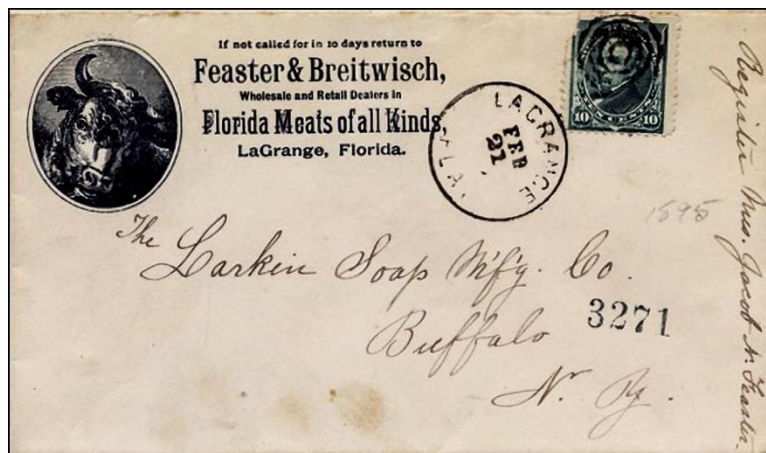 If not called for in 10 days return to
Feaster & Breitwisch,
Wholesale and Retail Dealers in
Florida Meats of all Kinds,
LaGrange, Florida.
LAGRANGE
FLA.
FEB
21
10 10
1895
The Larkin Soap M'f'g. Co.
Buffalo
N. Y.
3271
Register Mrs. Jacob N. Feaster.